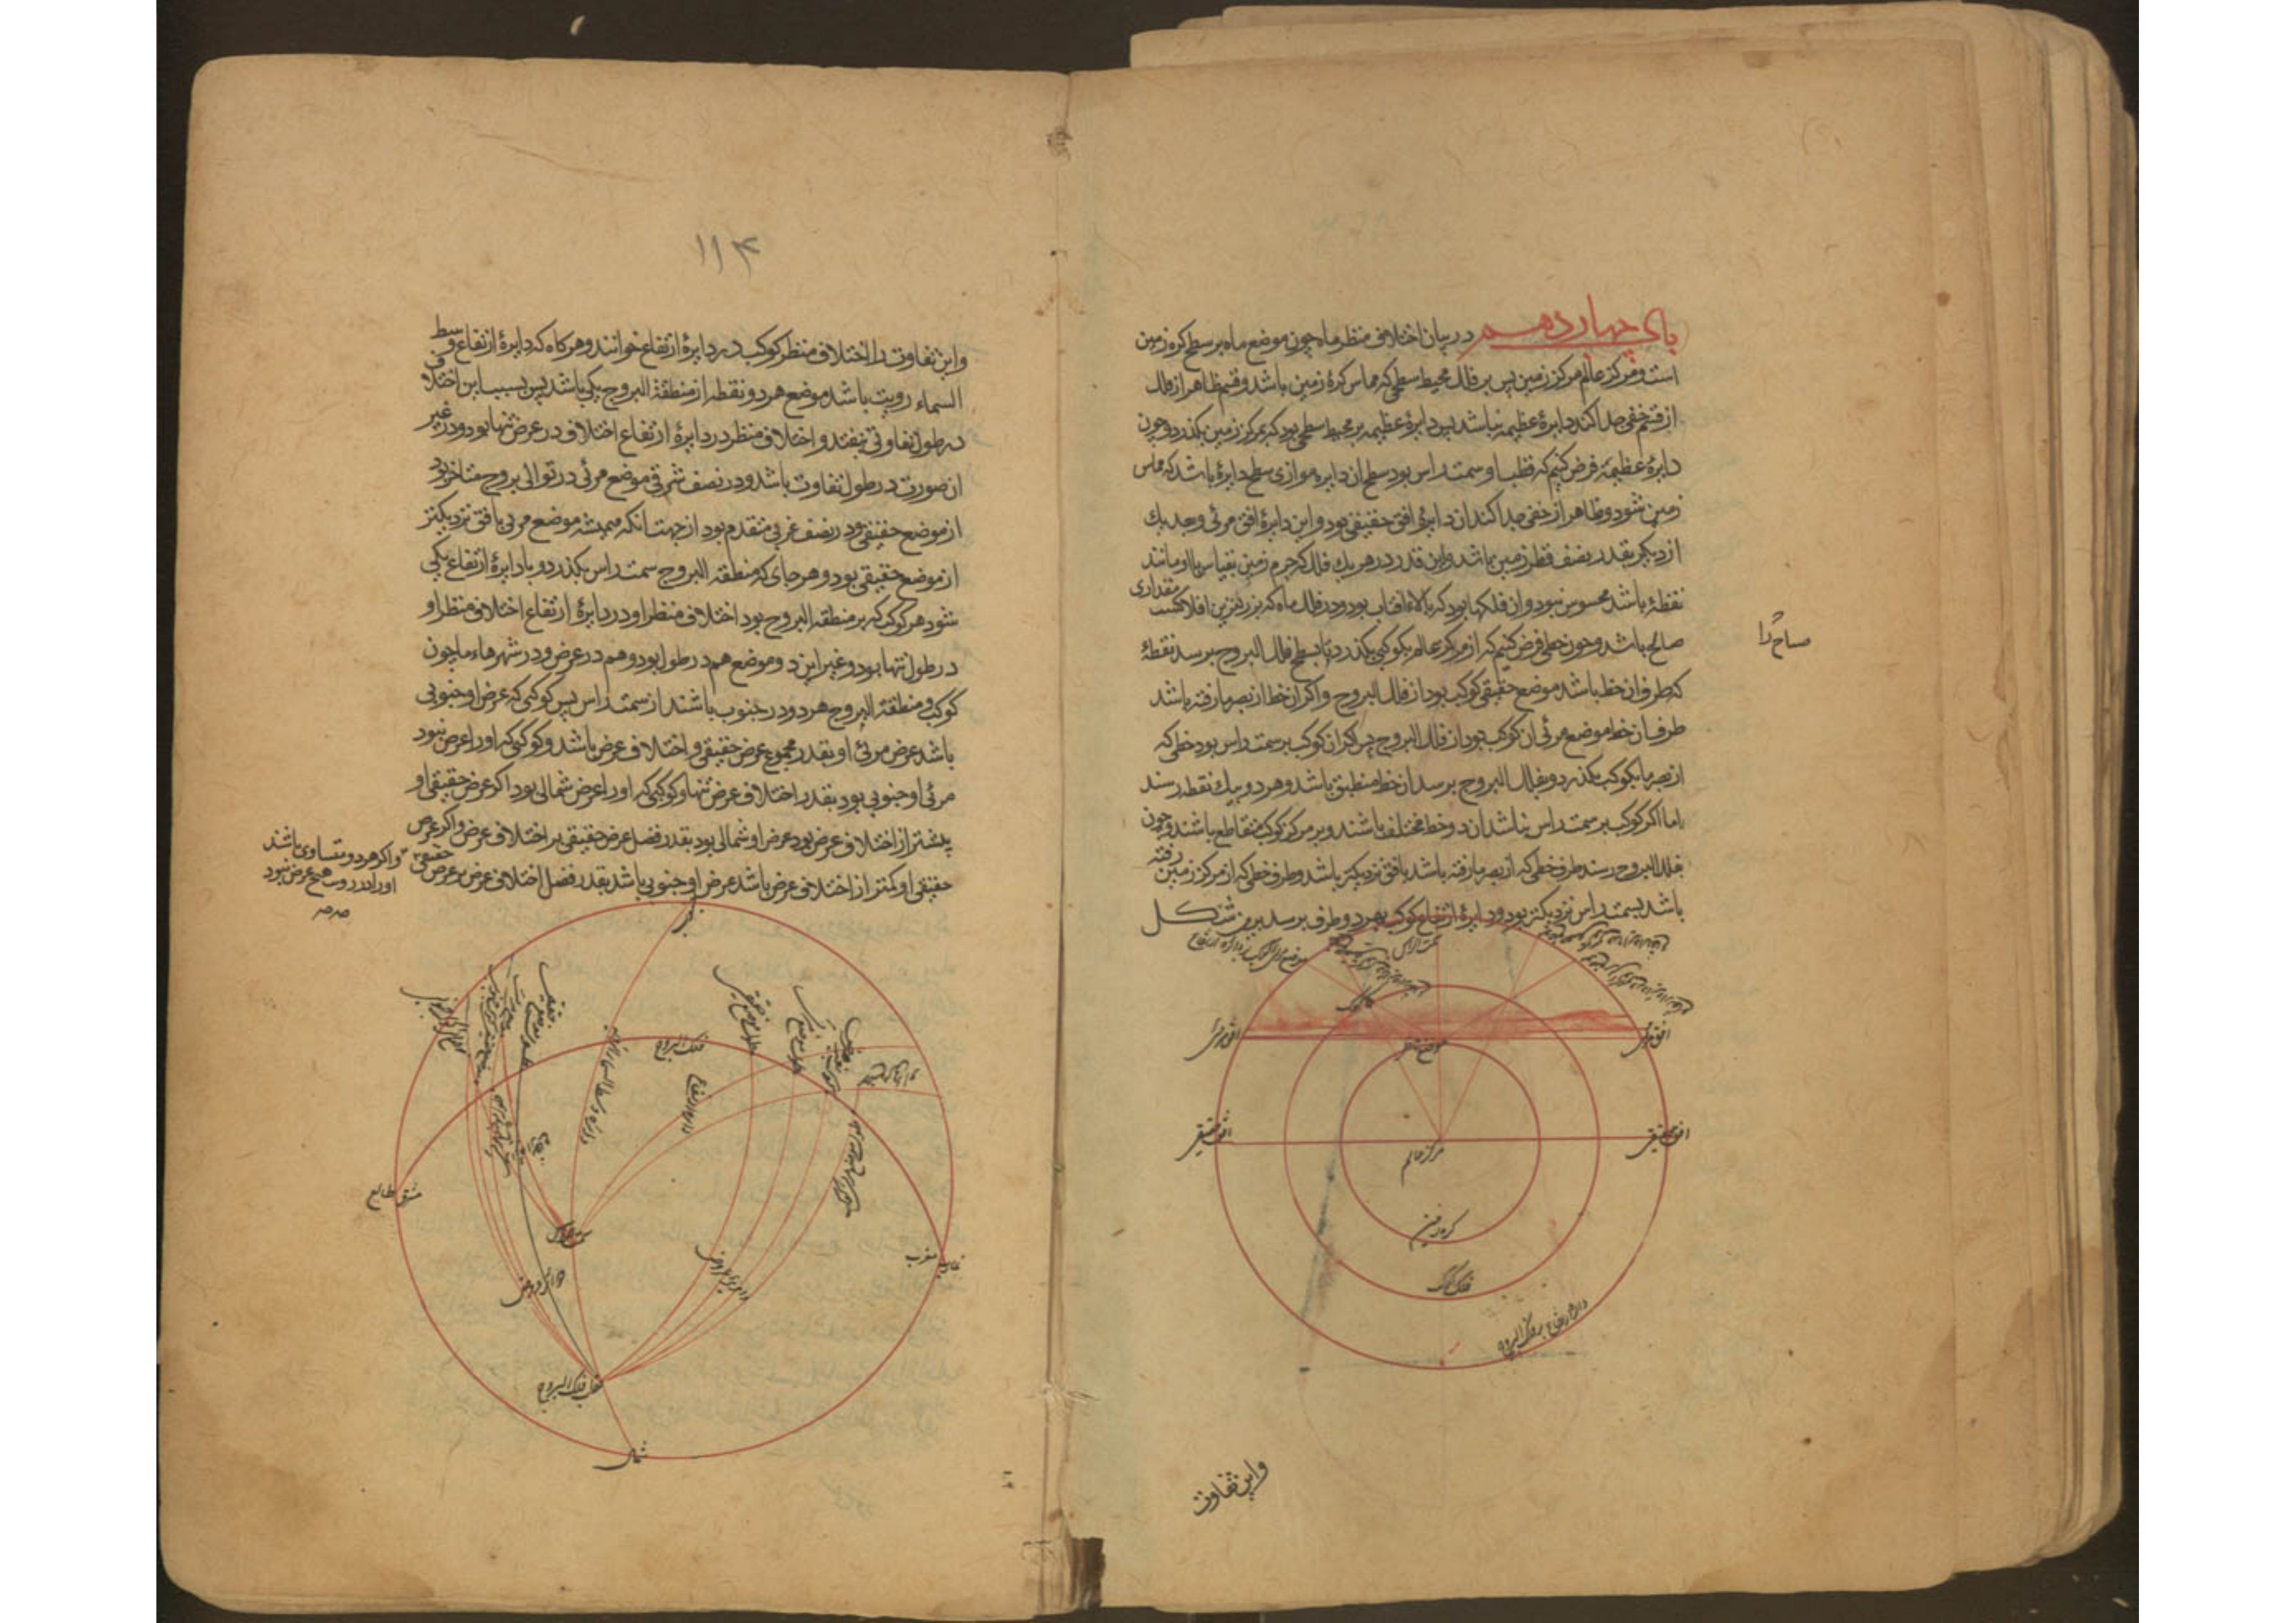 باب چهاردهم در بیان اختلاف منظر ماه چون موضع ماه بر سطح کره زمین
است و مرکز عالم مرکز زمین پس بر فلک محیط سطحی که مماس کرهٔ زمین باشد و قسم ظاهر از فلک
از قسم خفی جدا کند دایرهٔ عظیمه نباشد پس دایرهٔ عظیمه بر محیط سطحی بود که بمرکز زمین بکذرد و چون
دایرهٔ عظیمه فرض کنیم که قطب او سمت راس بود سطح ان دایره موازی سطح دایرهٔ باشد که مماس
زمین شود و ظاهر از خفی جدا کند ان دایره افق حقیقی بود و این دایرهٔ افق مرئی و بعد یک
از دیکر بقدر نصف قطر زمین باشد و این قدر در هر یک فلک که جرم زمین بقیاس با او مانند
نقطهٔ باشد محسوس نبود و ان فلکها بود که بالاء افتاب بود و در فلک ماه که نزدیکترین افلاکست مقداری
صالح باشد و چون خطی فرض کنیم که از مرکز عالم بکوکبی بکذرد تا بسطح فلک البروج برسد نقطهٔ
که طرف ان خط باشد موضع حقیقی کوکب بود از فلک البروج و اکر ان خط از بصر ما رفته باشد
طرف ان خط موضع مرئی ان کوکب بود از فلک البروج پس اکر ان کوکب بر سمت راس بود خطی که
از بصر ما بکوکب بکذرد و بفلک البروج برسد ان خط منطبق باشد و هر دو بیک نقطه رسند
اما اکر کوکب بر سمت راس نباشد ان دو خط مختلف باشند و بر مرکز کوکب متقاطع باشند و چون
بفلک البروج رسند طرف خطی که از بصر ما رفته باشد بافق نزدیکتر باشد و طرف خطی که از مرکز زمین رفته
باشد بسمت راس نزدیکتر بود و دایرهٔ ارتفاع کوکب بهر دو طرف برسد برین شکل
صباح را
سمت الراس
کوکب
افق مرئی
افق مرئی
موضع نظر
افق حقیقی
افق حقیقی
مرکز عالم
کره زمین
فلک کوکب
دایره ارتفاع بر فلک البروج
و این تفاوت
۱۱۴
و این تفاوت را اختلاف منظر کوکب در دایرهٔ ارتفاع خوانند و هرکاه که دایرهٔ ارتفاع وسط
السماء رویت باشد موضع هر دو نقطه از منطقة البروج یکی باشد پس بسبب این اختلاف
در طول تفاوتی نیفتد و اختلاف منظر در دایرهٔ ارتفاع اختلاف در عرض تنها بود و در غیر
ان صورت در طول تفاوت باشد و در نصف شرقی موضع مرئی در توالی بروج متاخر بود
از موضع حقیقی و در نصف غربی متقدم بود از جهت انکه همیشه موضع مرئی بافق نزدیکتر
از موضع حقیقی بود و هر جای که منطقه البروج سمت راس بکذرد و با دایرهٔ ارتفاع یکی
شود هر کوکب که بر منطقه البروج بود اختلاف منظر او در دایرهٔ ارتفاع اختلاف منظر او
در طول تنها بود و غیر این دو موضع هم در طول بود و هم در عرض و در شهرهاء ما چون
کوکب و منطقة البروج هر دو در جنوب باشند از سمت راس پس کوکبی که عرض او جنوبی
باشد عرض مرئی او بقدر مجموع عرض حقیقی و اختلاف عرض باشد و کوکبی که او را عرض نبود
مرئی او جنوبی بود بقدر اختلاف عرض تنها و کوکبی که او را عرض شمالی بود اکر عرض حقیقی او
بیشتر از اختلاف عرض بود عرض او شمالی بود بقدر فضل عرض حقیقی بر اختلاف عرض و اکر عرض
حقیقی او کمتر از اختلاف عرض باشد عرض او جنوبی باشد بقدر فضل اختلاف عرض بر عرض حقیقی
و اکر هر دو متساوی باشند
او را در رویت هیچ عرض نبود
صح صح
فلک البروج
دایره وسط السماء
دایره ارتفاع
مشرق طالع
سمت الراس
غارب مغرب
دوایر عروض
دوایر عروض
قطب فلک البروج
شمال